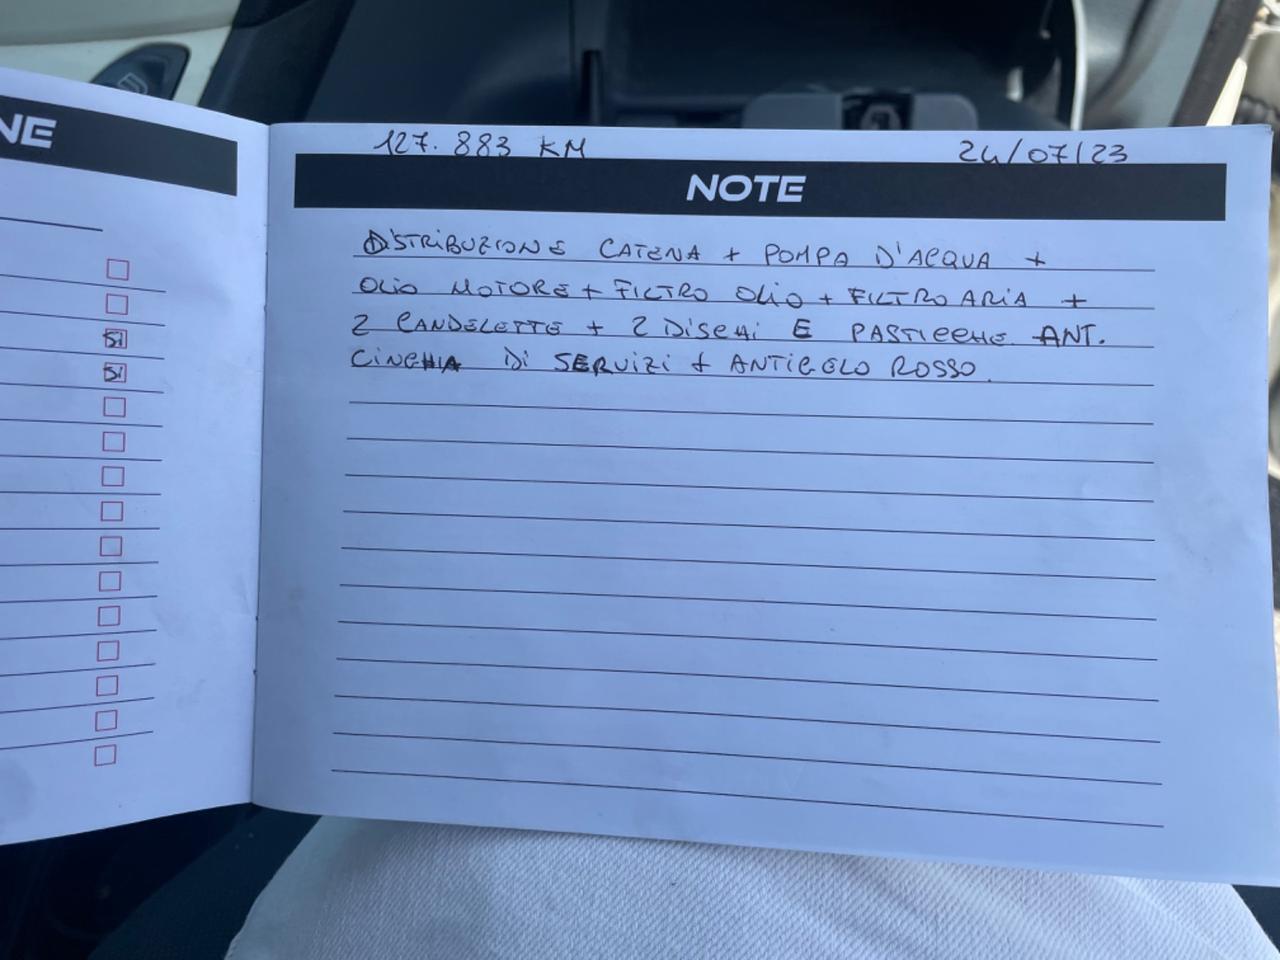 NE
127.883 KM
24/07/23
NOTE
DISTRIBUZIONE CATENA + POMPA D'ACQUA +
OLIO MOTORE + FILTRO OLIO + FILTRO ARIA +
2 CANDELETTE + 2 DISCHI E PASTICCHE ANT.
CINGHIA DI SERVIZI + ANTIGELO ROSSO.
SI
SI